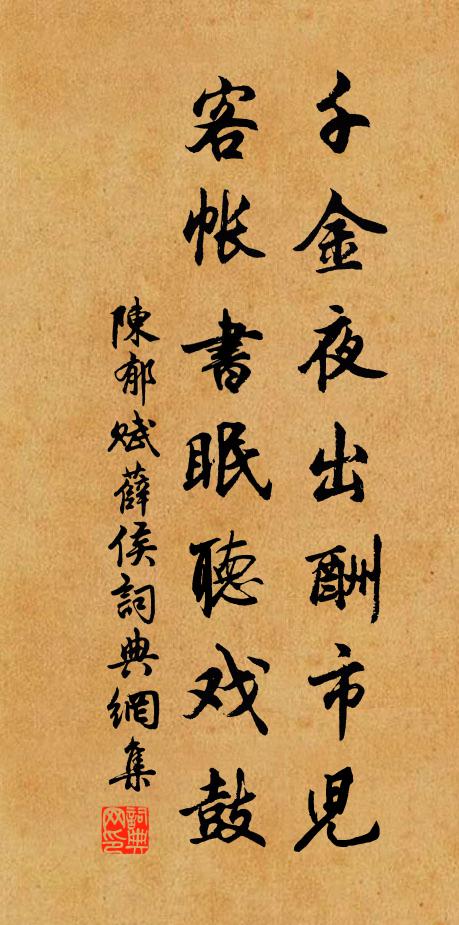 千金夜出酬市児
客帐書眠聽戏鼓
陳郁赋薛侯詞典網集
詞典网印